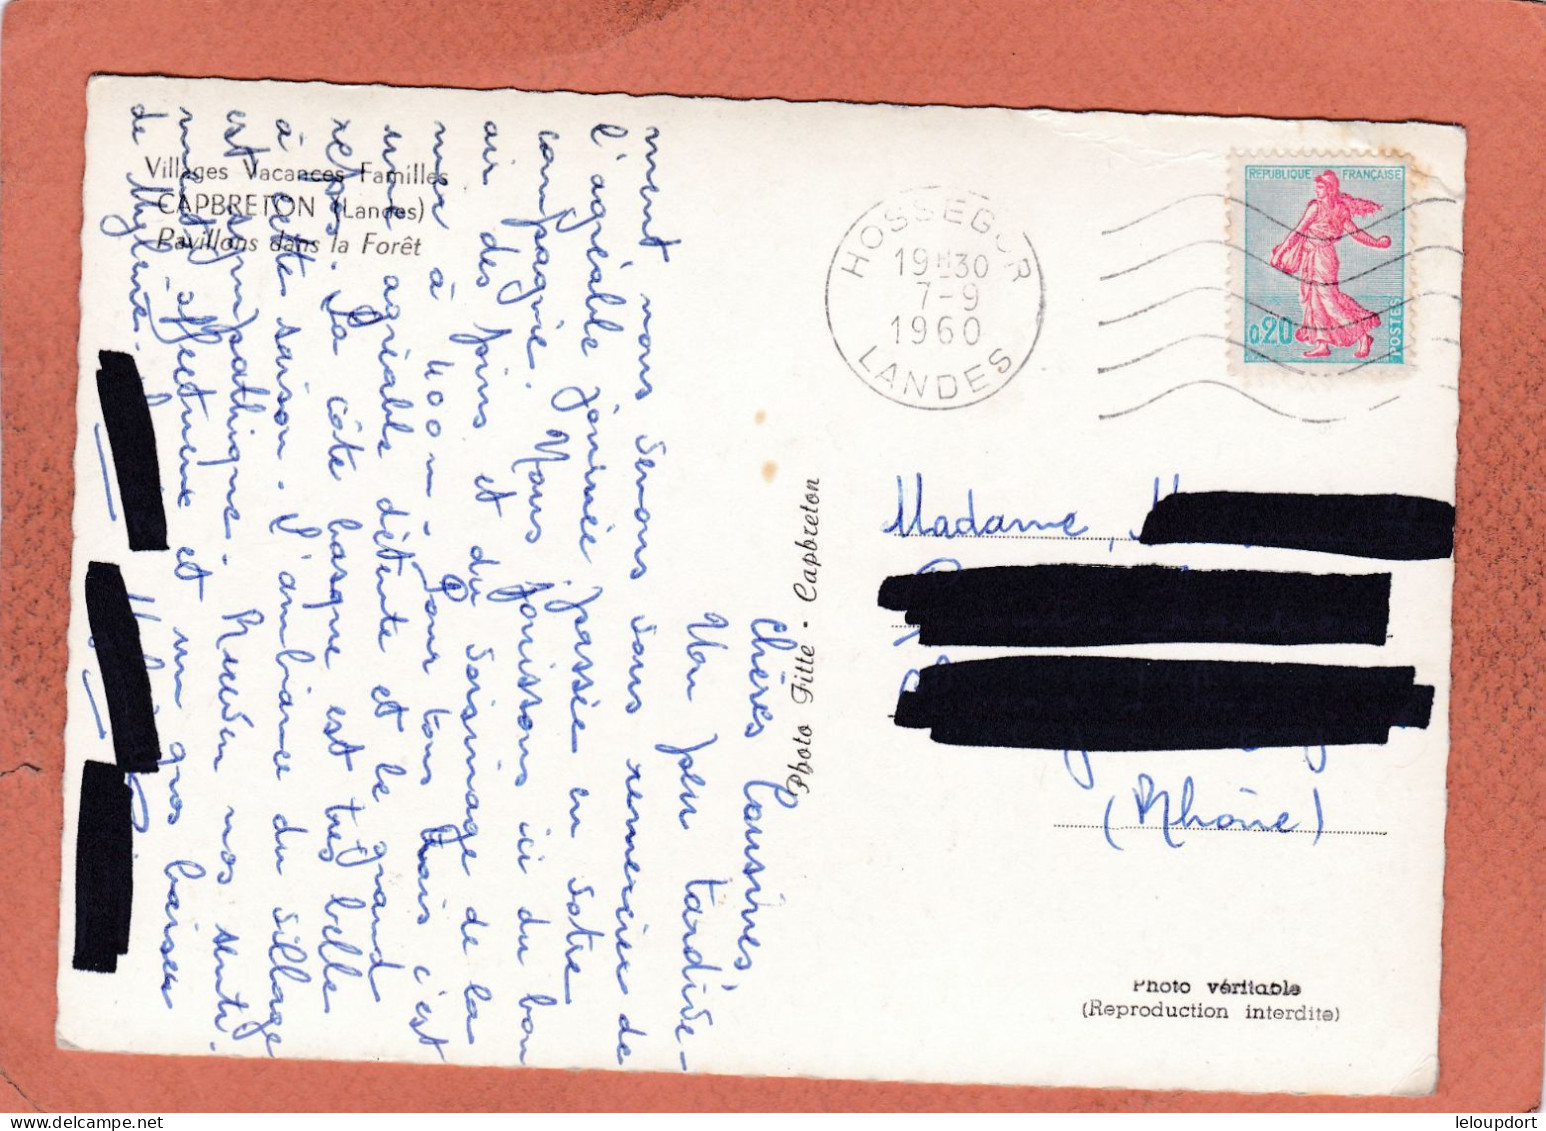 Villages Vacances Familles
CAPBRETON (Landes)
Pavillons dans la Forêt
Chères Cousines
Un peu tardive-
ment nous venons vous remercier de
l'agréable journée passée en votre
compagnie. Nous jouissons ici du bon
air des pins et du voisinage de la
mer à 400 m. Pour tous trois c'est
une agréable détente et le grand
repos. La côte basque est très belle
à cette saison. L'ambiance du village
est sympathique. Recevez nos senti-
ments affectueux et un gros baiser
de Mylène.
Photo Fitte - Capbreton
HOSSEGOR
19H30
7-9
1960
LANDES
REPUBLIQUE FRANÇAISE
0.20
POSTES
Madame, M
(Rhône)
Photo véritable
(Reproduction interdite)
leloupdort